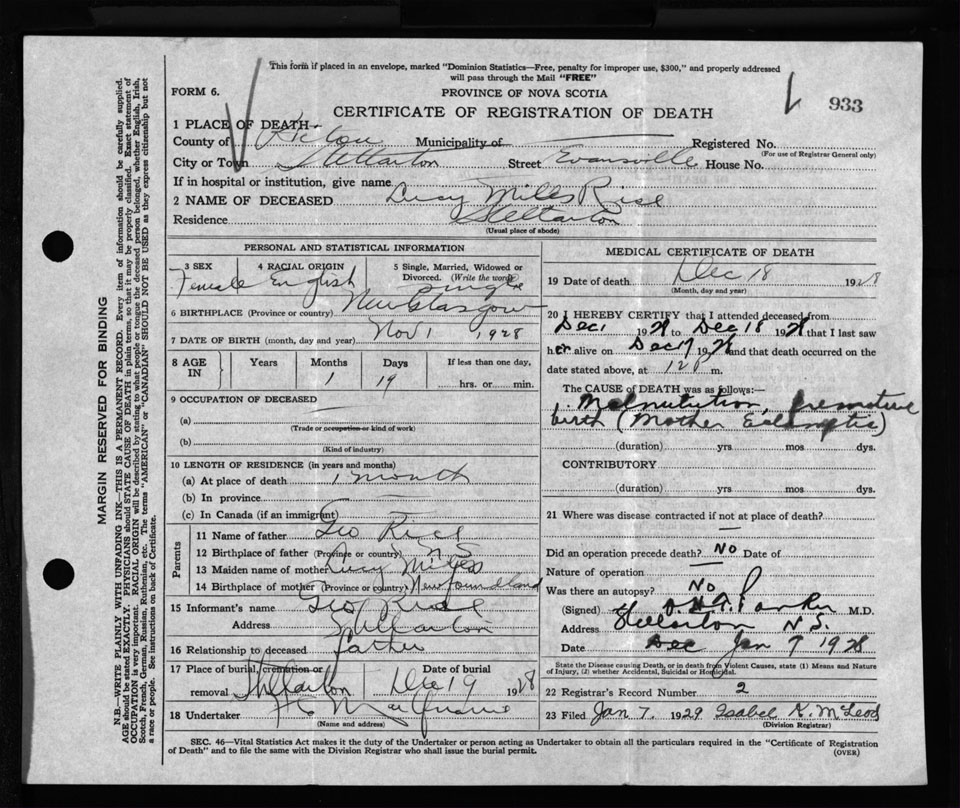 This form if placed in an envelope, marked "Dominion Statistics—Free, penalty for improper use, $300," and properly addressed
will pass through the Mail "FREE"
FORM 6.
PROVINCE OF NOVA SCOTIA
933
CERTIFICATE OF REGISTRATION OF DEATH
1 PLACE OF DEATH—
County of Pictou Municipality of Registered No.
(For use of Registrar General only)
City or Town Stellarton Street Evansville House No.
If in hospital or institution, give name
2 NAME OF DECEASED Lucy Mills Rice
Residence Stellarton
(Usual place of abode)
PERSONAL AND STATISTICAL INFORMATION
3 SEX 4 RACIAL ORIGIN 5 Single, Married, Widowed or
Divorced. (Write the word)
Female English Single
6 BIRTHPLACE (Province or country) New Glasgow
7 DATE OF BIRTH (month, day and year) Nov 1 1928
8 AGE IN Years Months Days If less than one day,
1 19 hrs. or min.
9 OCCUPATION OF DECEASED
(a)
(Trade or occupation or kind of work)
(b)
(Kind of industry)
10 LENGTH OF RESIDENCE (in years and months)
(a) At place of death 1 month
(b) In province
(c) In Canada (if an immigrant)
Parents
11 Name of father Geo Rice
12 Birthplace of father (Province or country) N S
13 Maiden name of mother Lucy Mills
14 Birthplace of mother (Province or country) Newfoundland
15 Informant's name Geo Rice
Address Stellarton
16 Relationship to deceased father
17 Place of burial, cremation or Date of burial
removal Stellarton Dec 19 1928
18 Undertaker
(Name and address)
MEDICAL CERTIFICATE OF DEATH
19 Date of death Dec 18 1928
(Month, day and year)
20 I HEREBY CERTIFY that I attended deceased from
Dec 1 1928 to Dec 18 1928 that I last saw
her alive on Dec 17 1928 and that death occurred on
date stated above, at 12 m.
The CAUSE OF DEATH was as follows:—
Malnutrition, premature
birth (Mother Eclamptic)
(duration) yrs mos dys.
CONTRIBUTORY
(duration) yrs mos dys.
21 Where was disease contracted if not at place of death?
Did an operation precede death? NO Date of
Nature of operation
Was there an autopsy? No
(Signed) Parker M.D.
Address Stellarton N.S.
Date Dec Jan 7 1928
State the Disease causing Death, or in death from Violent Causes, state (1) Means and Nature
of Injury, (2) whether Accidental, Suicidal or Homicidal.
22 Registrar's Record Number 2
23 Filed Jan 7. 1929 Isabel K. McLeod
(Division Registrar)
SEC. 46—Vital Statistics Act makes it the duty of the Undertaker or person acting as Undertaker to obtain all the particulars required in the "Certificate of Registration
of Death" and to file the same with the Division Registrar who shall issue the burial permit.
(OVER)
MARGIN RESERVED FOR BINDING
N.B.—WRITE PLAINLY WITH UNFADING INK—THIS IS A PERMANENT RECORD. Every item of information should be carefully supplied.
AGE should be stated EXACTLY. PHYSICIANS should STATE CAUSE OF DEATH in plain terms, so that it may be properly classified. Exact statement of
OCCUPATION is very important. RACIAL ORIGIN will be described by stating to what people or tongue the deceased person belonged, whether English, Irish,
Scotch, French, German, Russian, Ruthenian, etc. The terms "AMERICAN" or "CANADIAN" SHOULD NOT BE USED as they express citizenship but not
a race or people. See instructions on back of Certificate.